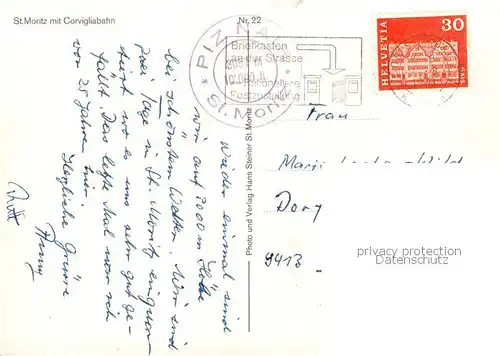 St.Moritz mit Corvigliabahn
Nr. 22
PIZ NAIR
St. Moritz
Briefkasten
an der Strasse
Postzustellung
HELVETIA
30
GAIS
Photo und Verlag Hans Steiner St. Moritz
Wieder einmal sind
wir auf 3000 m Höhe
bei schönstem Wetter. Wir sind
zwei Tage in St. Moritz einquar-
tiert wo es uns sehr gut ge-
fällt. Das letzte Mal war ich
vor 25 Jahren hier.
Herzliche Grüsse
Frau
Dory
9413
privacy protection
Datenschutz